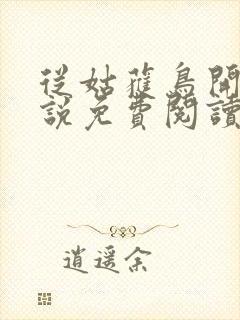 從姑蘿鳥開
說免費閱讀
逍遥余